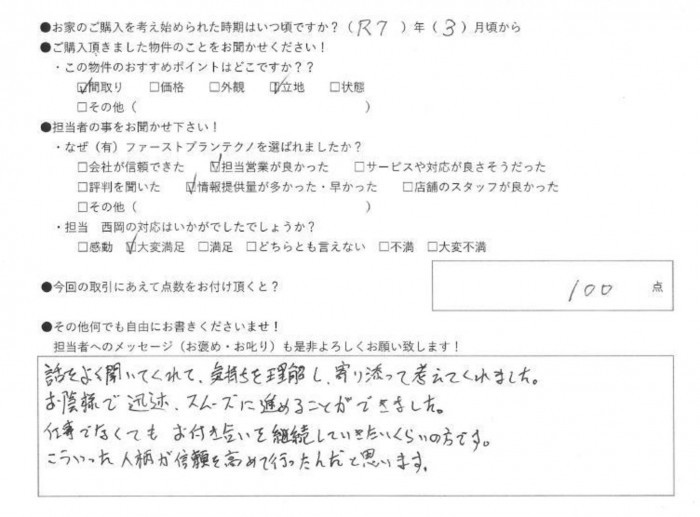 ●お家のご購入を考え始められた時期はいつ頃ですか？（R7）年（3）月頃から
●ご購入頂きました物件のことをお聞かせください！
・この物件のおすすめポイントはどこですか？？
☑間取り　□価格　□外観　☑立地　□状態
□その他（　　　　　　　　　　）
●担当者の事をお聞かせ下さい！
・なぜ（有）ファーストプランテクノを選ばれましたか？
□会社が信頼できた　☑担当営業が良かった　□サービスや対応が良さそうだった
□評判を聞いた　☑情報提供量が多かった・早かった　□店舗のスタッフが良かった
□その他（　　　　　　　　　　）
・担当　西岡の対応はいかがでしたでしょうか？
□感動　☑大変満足　□満足　□どちらとも言えない　□不満　□大変不満
●今回の取引にあえて点数をお付け頂くと？　100　点
●その他何でも自由にお書きくださいませ！
担当者へのメッセージ（お褒め・お叱り）も是非よろしくお願い致します！
話をよく聞いてくれて、気持ちを理解し、寄り添って考えてくれました。
お陰様で 迅速、スムーズに進めることができました。
仕事でなくても お付き合いを継続していきたいくらいの方です。
こういった人柄が信頼を高めて行ったんだと思います。